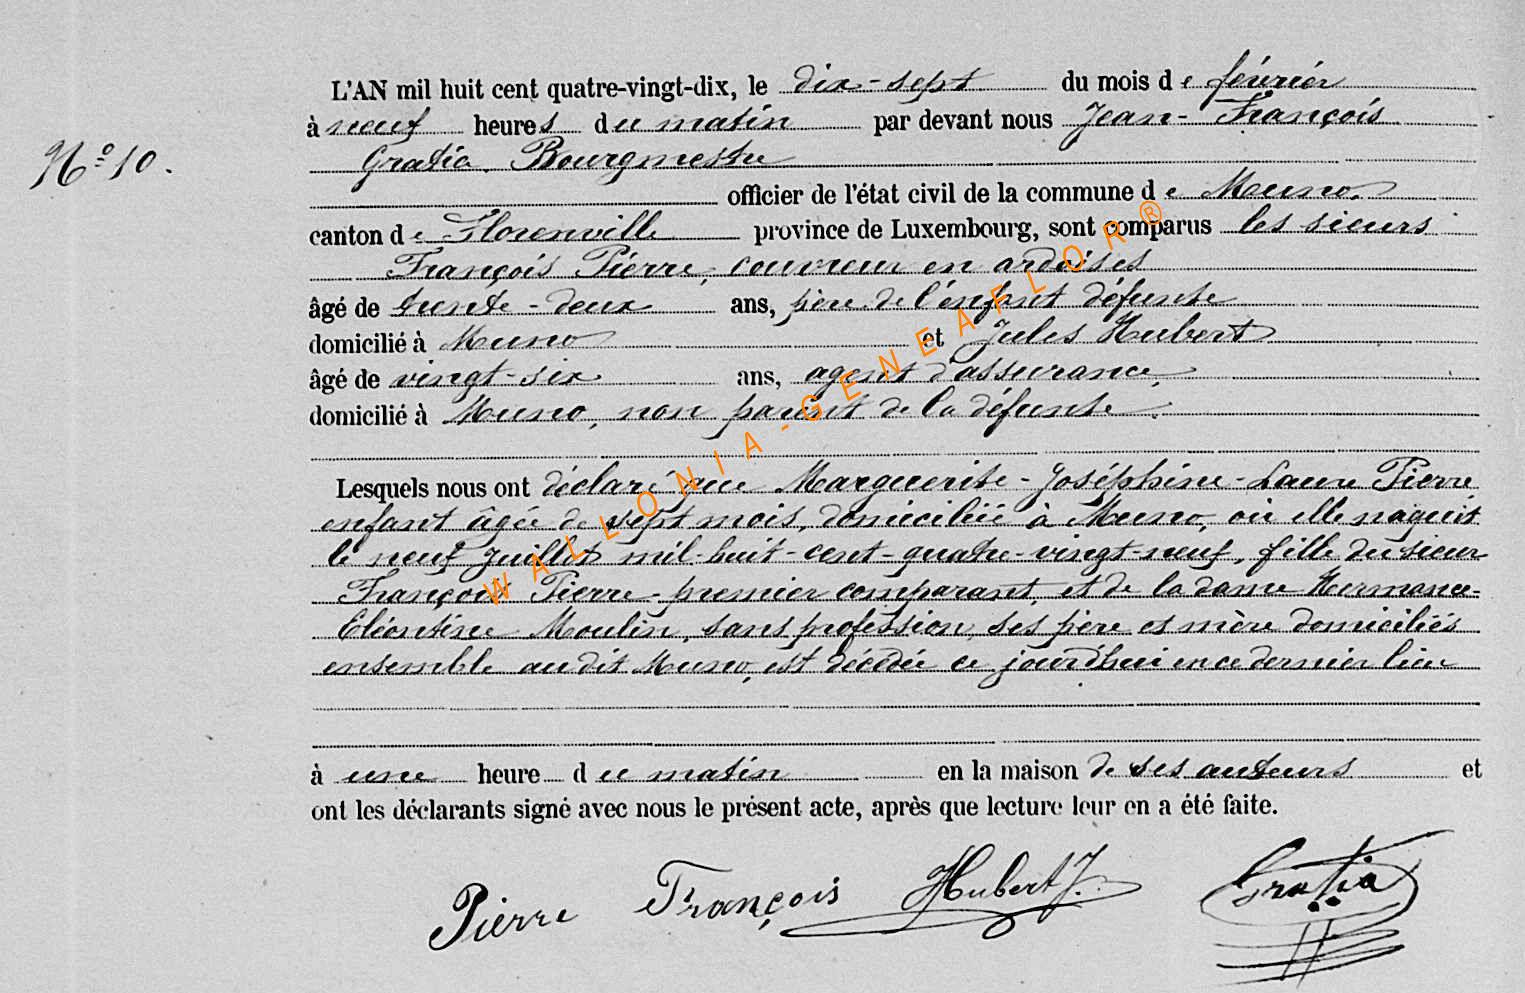 L'AN mil huit cent quatre-vingt-dix, le dix-sept du mois de février
à neuf heures du matin par devant nous Jean-François
N° 10.
Gratia, Bourgmestre
officier de l'état civil de la commune de Muno,
canton de Florenville province de Luxembourg, sont comparus les sieurs
François Pierre, couvreur en ardoises
âgé de trente-deux ans, père de l'enfant défunte
domicilié à Muno et Jules Hubert
âgé de vingt-six ans, agent d'assurance,
domicilié à Muno, non parent de la défunte.
Lesquels nous ont déclaré que Marguerite-Joséphine-Laure Pierre
enfant âgée de sept mois, domiciliée à Muno, où elle naquit
le neuf Juillet mil-huit-cent-quatre-vingt-neuf, fille du sieur
François Pierre premier comparant, et de la dame Hermance-
Cléontine Moulin, sans profession, ses père et mère domiciliés
ensemble au dit Muno, est décédée ce jourd'hui en ce dernier lieu
à une heure du matin en la maison de ses auteurs et
ont les déclarants signé avec nous le présent acte, après que lecture leur en a été faite.
Pierre François Hubert J. Gratia
WALLONIA-GENEAFLOR®